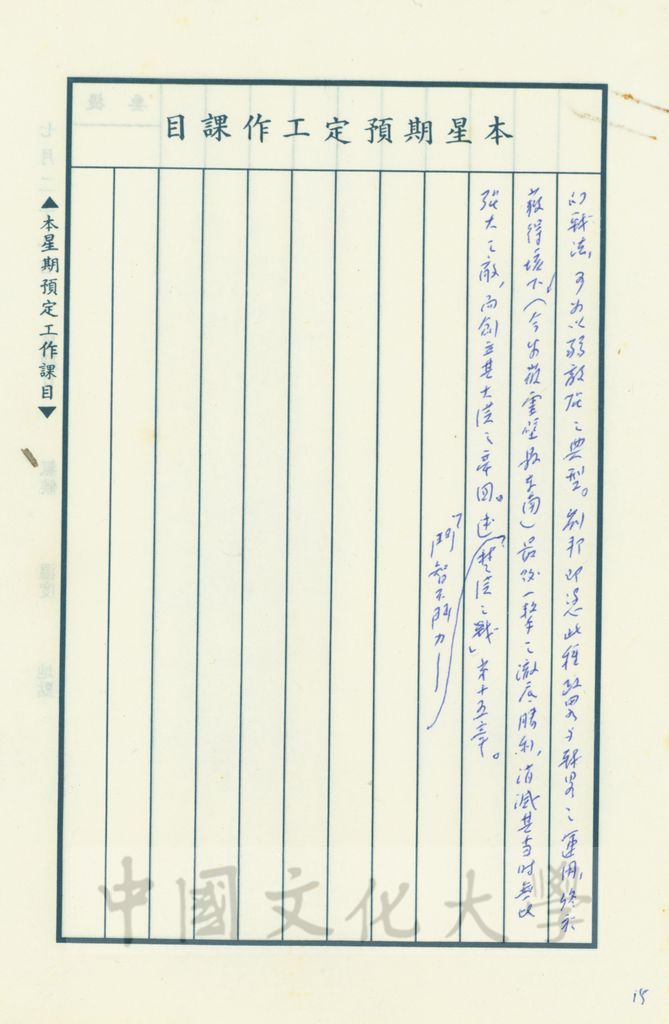 本星期預定工作課目
的戰法,可為以弱敵強之典型。劉邦即憑此種政略與戰略之運用,終於
獲得垓下(今安徽靈壁縣東南)最後一擊之澈底勝利,消滅其當時無比
強大之敵,而創立其大漢之帝國。述「楚漢之戰」第十五章。
「鬥智不鬥力」
▲本星期預定工作課目▼
中國文化大學
15